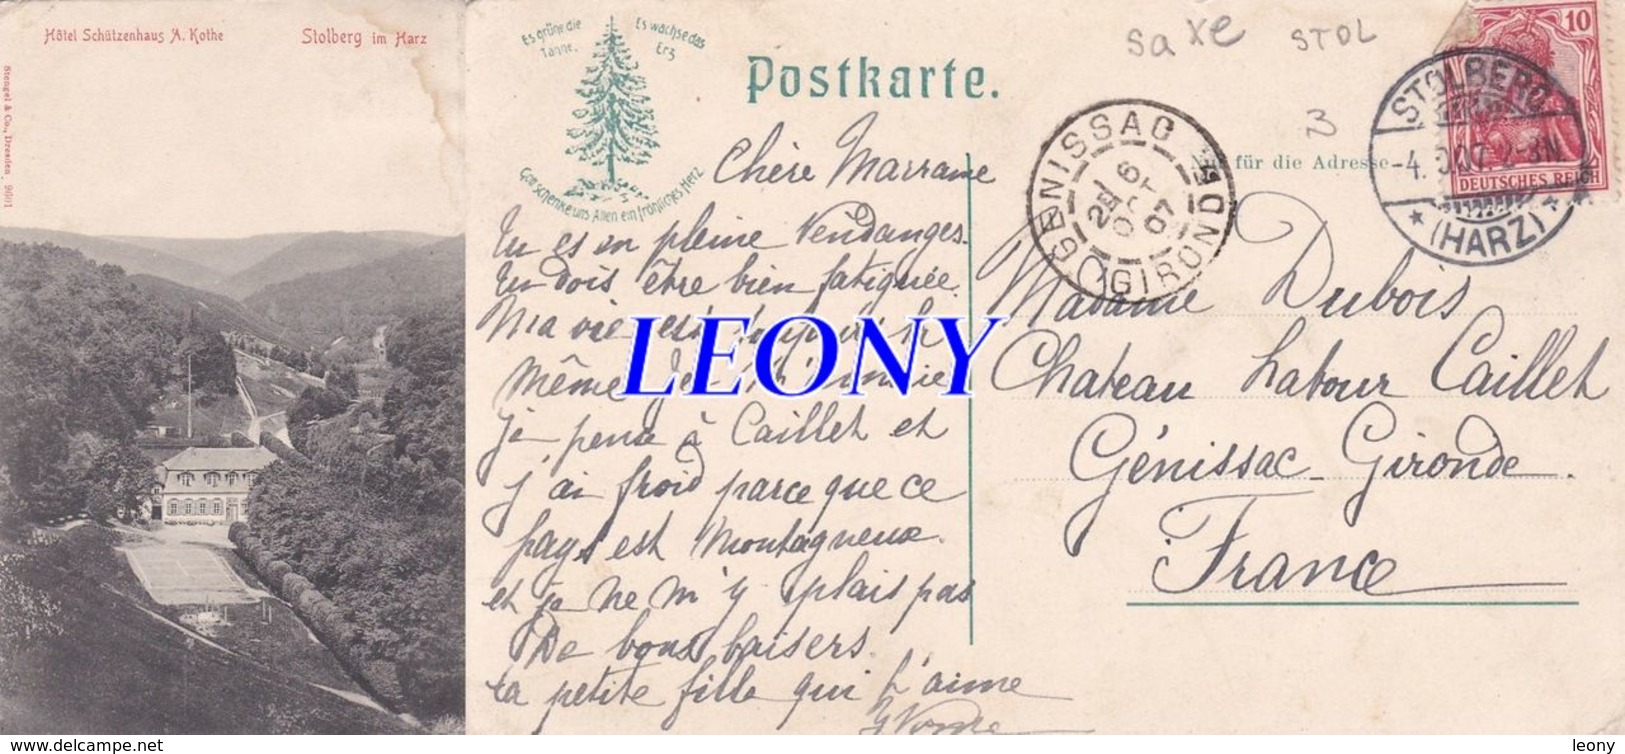 Hôtel Schützenhaus A. Kothe
Stolberg im Harz
Stengel & Co., Dresden. 9601
Es grüne die
Tanne.
Es wachse das
Erz
Gott schenke uns Allen ein fröhliches Herz
Postkarte.
saxe STOL
3
Nur für die Adresse
GENISSAC
2E 6
OCT
07
(GIRONDE)
10
DEUTSCHES REICH
STOLBERG
-4. 07. 2-3N
* (HARZ) *
Chère Marraine
Tu es en pleine Vendanges.
Tu dois être bien fatiguée.
Ma vie est toujours la
même Je m'ennuie
je pense à Caillet et
j'ai froid parce que ce
pays est Montagneux.
et je ne m'y plais pas
De bons baisers.
ta petite fille qui t'aime
Yvonne
Madame Dubois
Chateau Latour Caillet
Génissac - Gironde.
France
LEONY
http://www.delcampe.net
leony